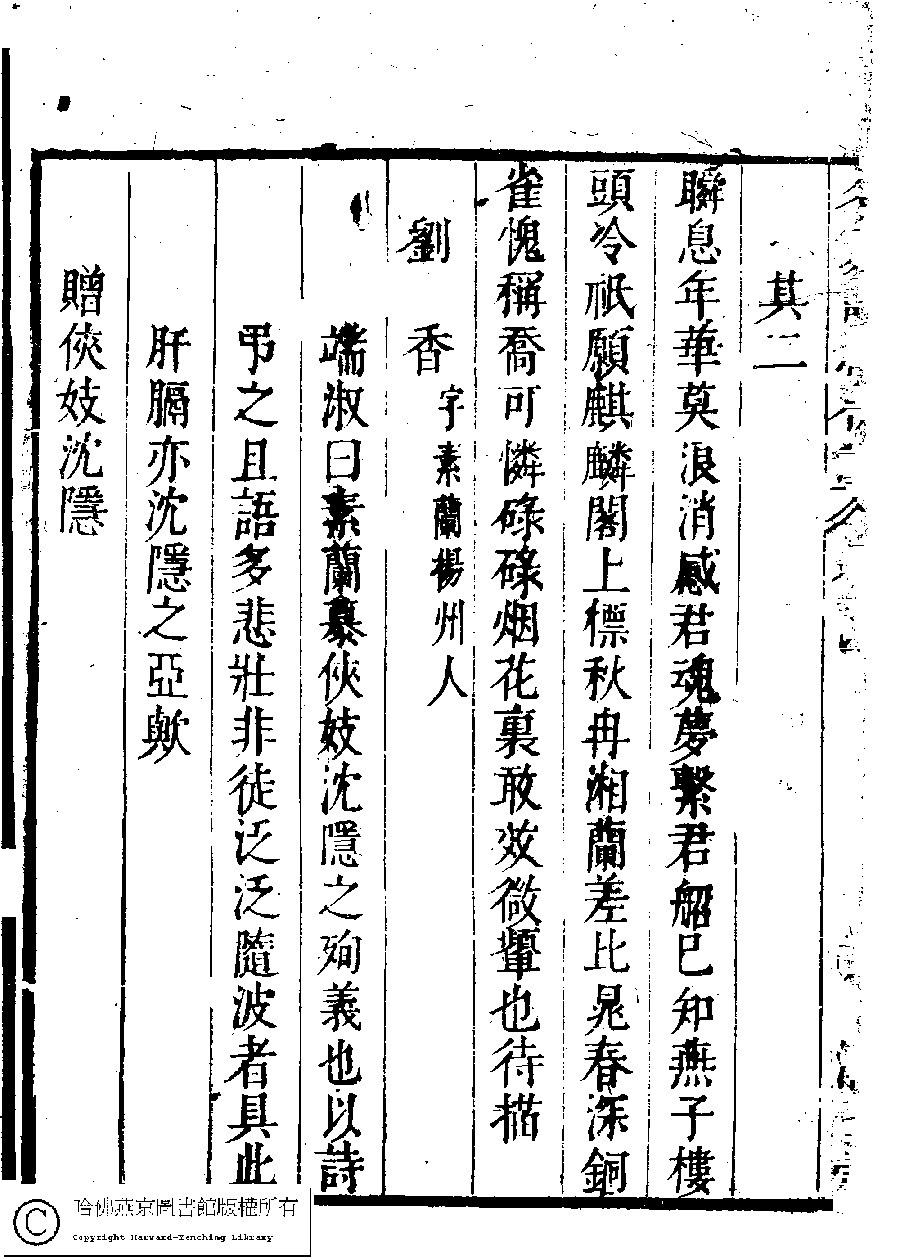 其二
聯息年華莫浪消感君魂夢繫君船已知燕子樓
頭冷祇願麒麟閣上標秋冉湘蘭差比晁春深銅
雀愧稱喬可憐碌碌烟花裏敢效微顰也待描
劉香 字素蘭楊州人
端淑曰素蘭慕俠妓沈隱之殉義也以詩
弔之且語多悲壯非徒泛泛隨波者具此
肝膈亦沈隱之亞歟
贈俠妓沈隱
哈佛燕京圖書館版權所有
Copyright Harvard-Yenching Library